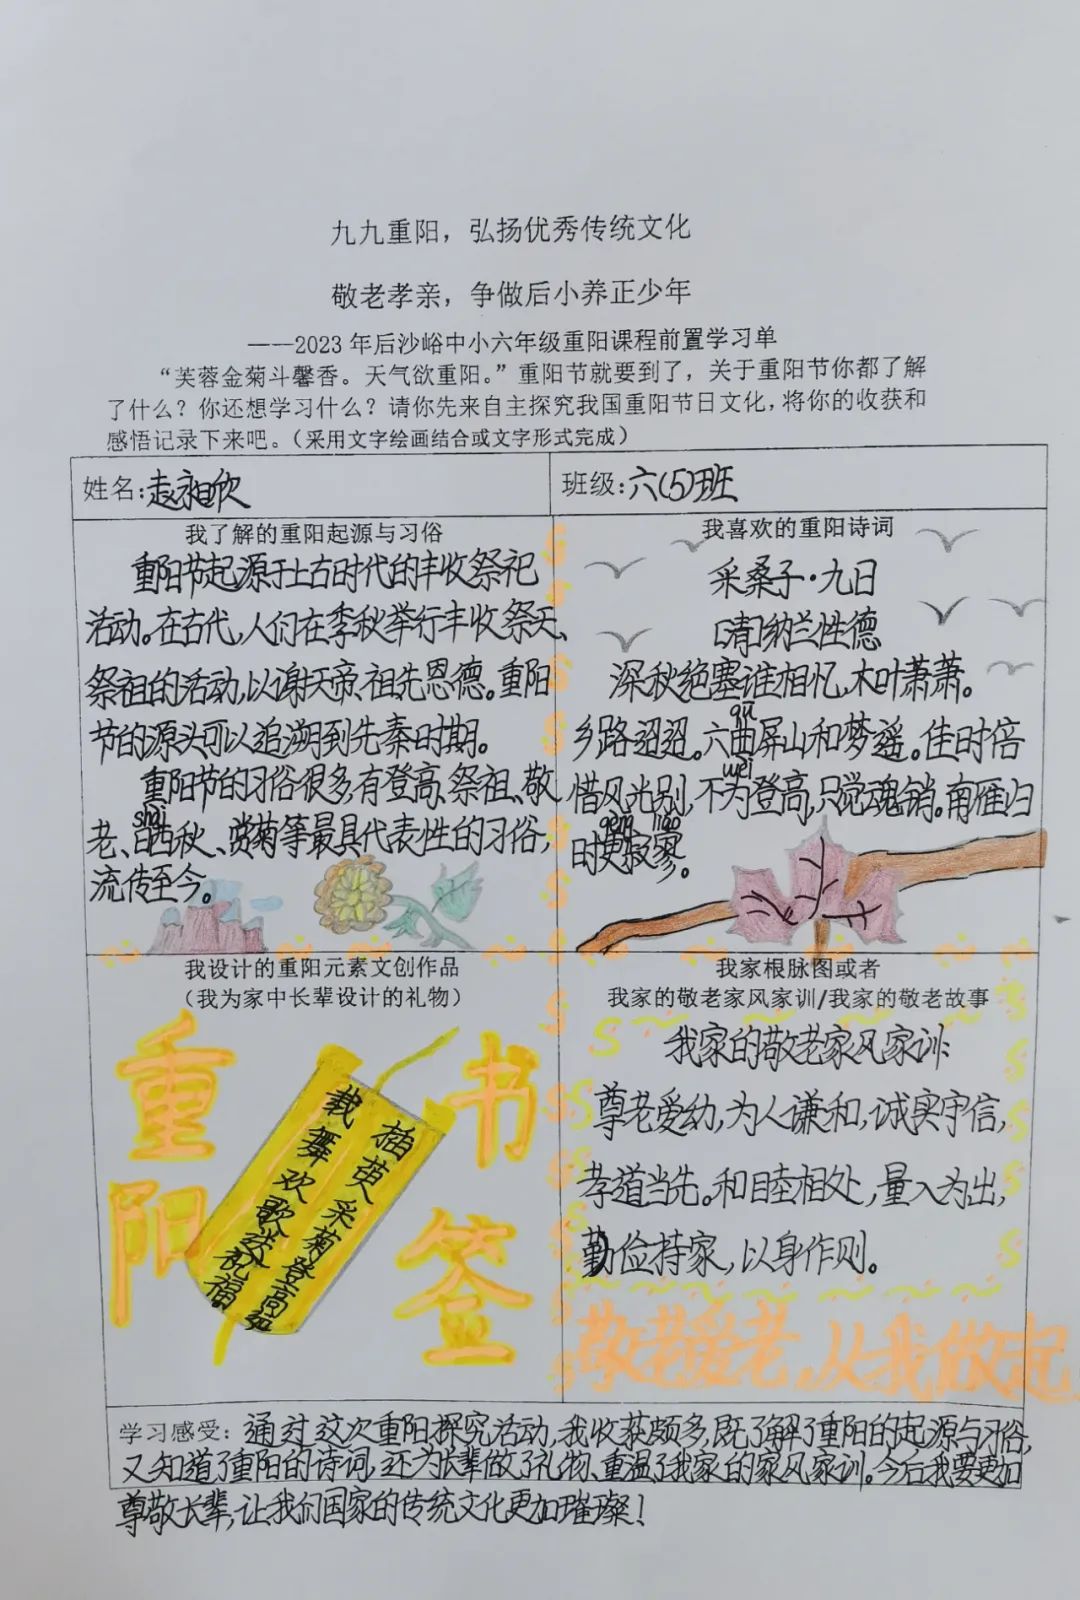 九九重阳，弘扬优秀传统文化
敬老孝亲，争做后小养正少年
——2023 年后沙峪中小六年级重阳课程前置学习单
“芙蓉金菊斗馨香。天气欲重阳。”重阳节就要到了，关于重阳节你都了解
了什么？你还想学习什么？请你先来自主探究我国重阳节日文化，将你的收获和
感悟记录下来吧。（采用文字绘画结合或文字形式完成）
姓名:
班级:六(5)班
我了解的重阳起源与习俗
重阳节起源于上古时代的丰收祭祀
活动。在古代,人们在季秋举行丰收祭天、
祭祖的活动,以谢天帝、祖先恩德。重阳
节的源头,可以追溯到先秦时期。
重阳节的习俗很多,有登高、祭祖、敬
shài
老、晒秋、赏菊等最具代表性的习俗,
流传至今。
我喜欢的重阳诗词
采桑子·九日
[清]纳兰性德
深秋绝塞谁相忆,木叶萧萧。
qū
乡路迢迢。六曲屏山和梦遥。佳时倍
wéi
惜风光别,不为登高,只觉魂销。南雁归
gèng liáo
时更寂寥。
我设计的重阳元素文创作品
（我为家中长辈设计的礼物）
重阳
书签
插萸采菊登高
载舞欢歌送祝福。
我家根脉图或者
我家的敬老家风家训/我家的敬老故事
我家的敬老家风家训:
尊老爱幼,为人谦和,诚实守信,
孝道当先。和睦相处,量入为出,
勤俭持家,以身作则。
敬老爱老,从我做起
学习感受：通过这次重阳探究活动,我收获颇多,既了解了重阳的起源与习俗,
又知道了重阳的诗词,还为长辈做了礼物、重温了我家的家风家训。今后我要更加
尊敬长辈,让我们国家的传统文化更加璀璨!